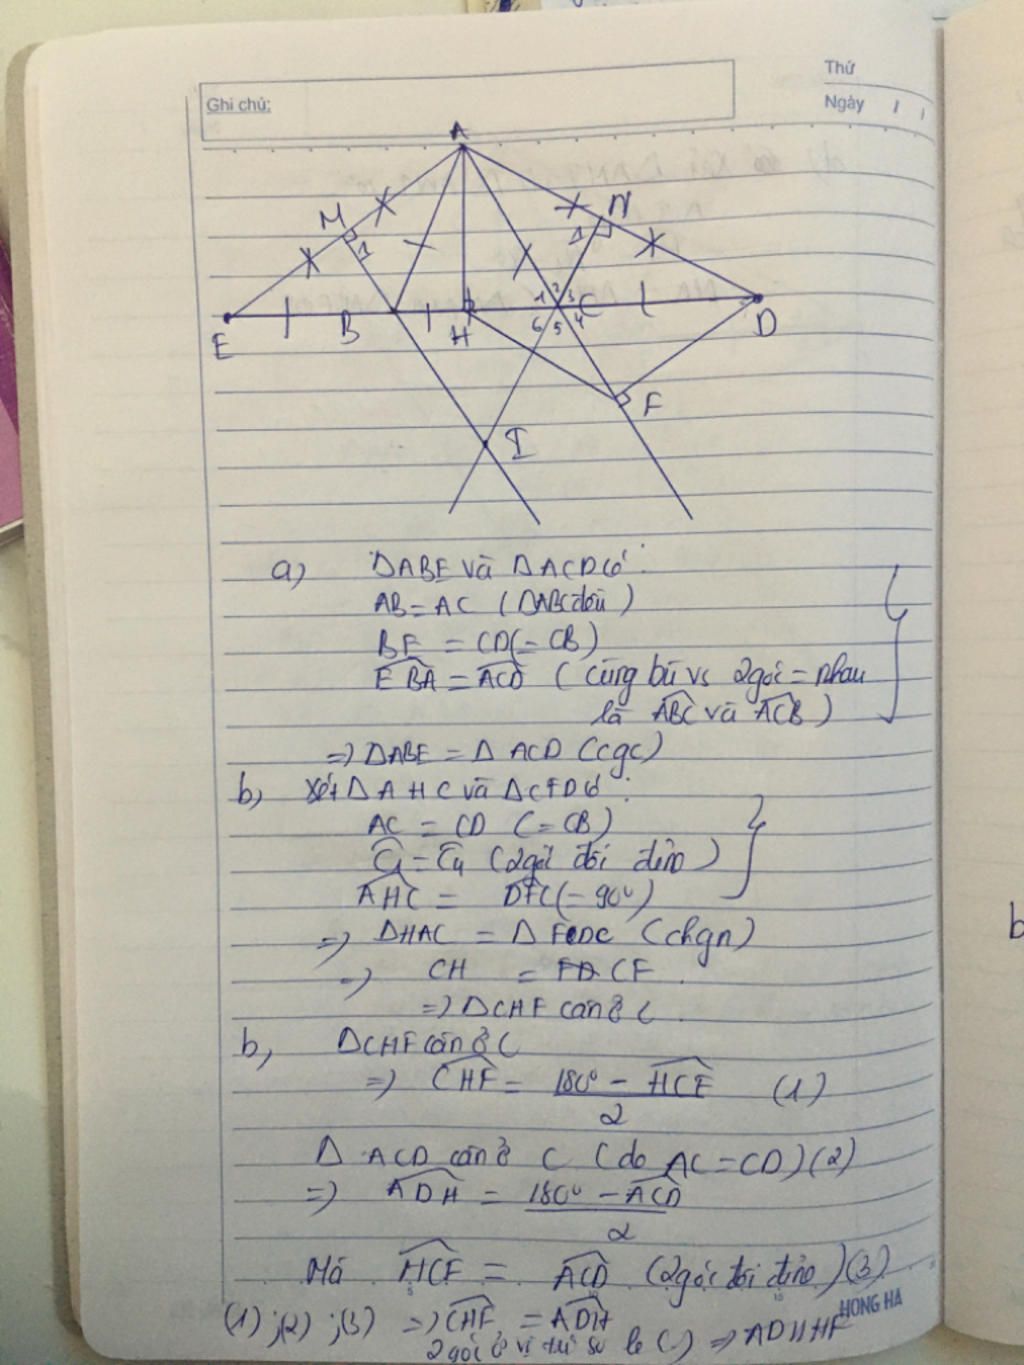 Thứ
Ghi chú:
Ngày
A
M
N
1
1
E
B
H
1 2 3
C
6 5 4
D
F
I
a) ΔABE và ΔACD có :
AB = AC (ΔABC đều)
BE = CD (= CB)
EBA = ACD ( cùng bù vs 2 góc = nhau
là ABC và ACB )
=> ΔABE = Δ ACD (cgc)
b, Xét Δ AHC và ΔCFD có :
AC = CD (= CB)
C1 = C4 (2 góc đối đỉnh)
AHC = DFC (= 90°)
=> ΔHAC = Δ FDC (chgn)
=> CH = FD CF
=> ΔCHF cân ở C
b, ΔCHF cân ở C
=> CHF = 180° - HCF / 2 (1)
Δ ACD cân ở C (do AC = CD) (2)
=> ADH = 180° - ACD / 2
Mà HCF = ACD (2 góc đối đỉnh) (3)
HONG HA
(1) ; (2) ; (3) => CHF = ADH
2 góc ở vị trí so le (-) => AD // HF
b